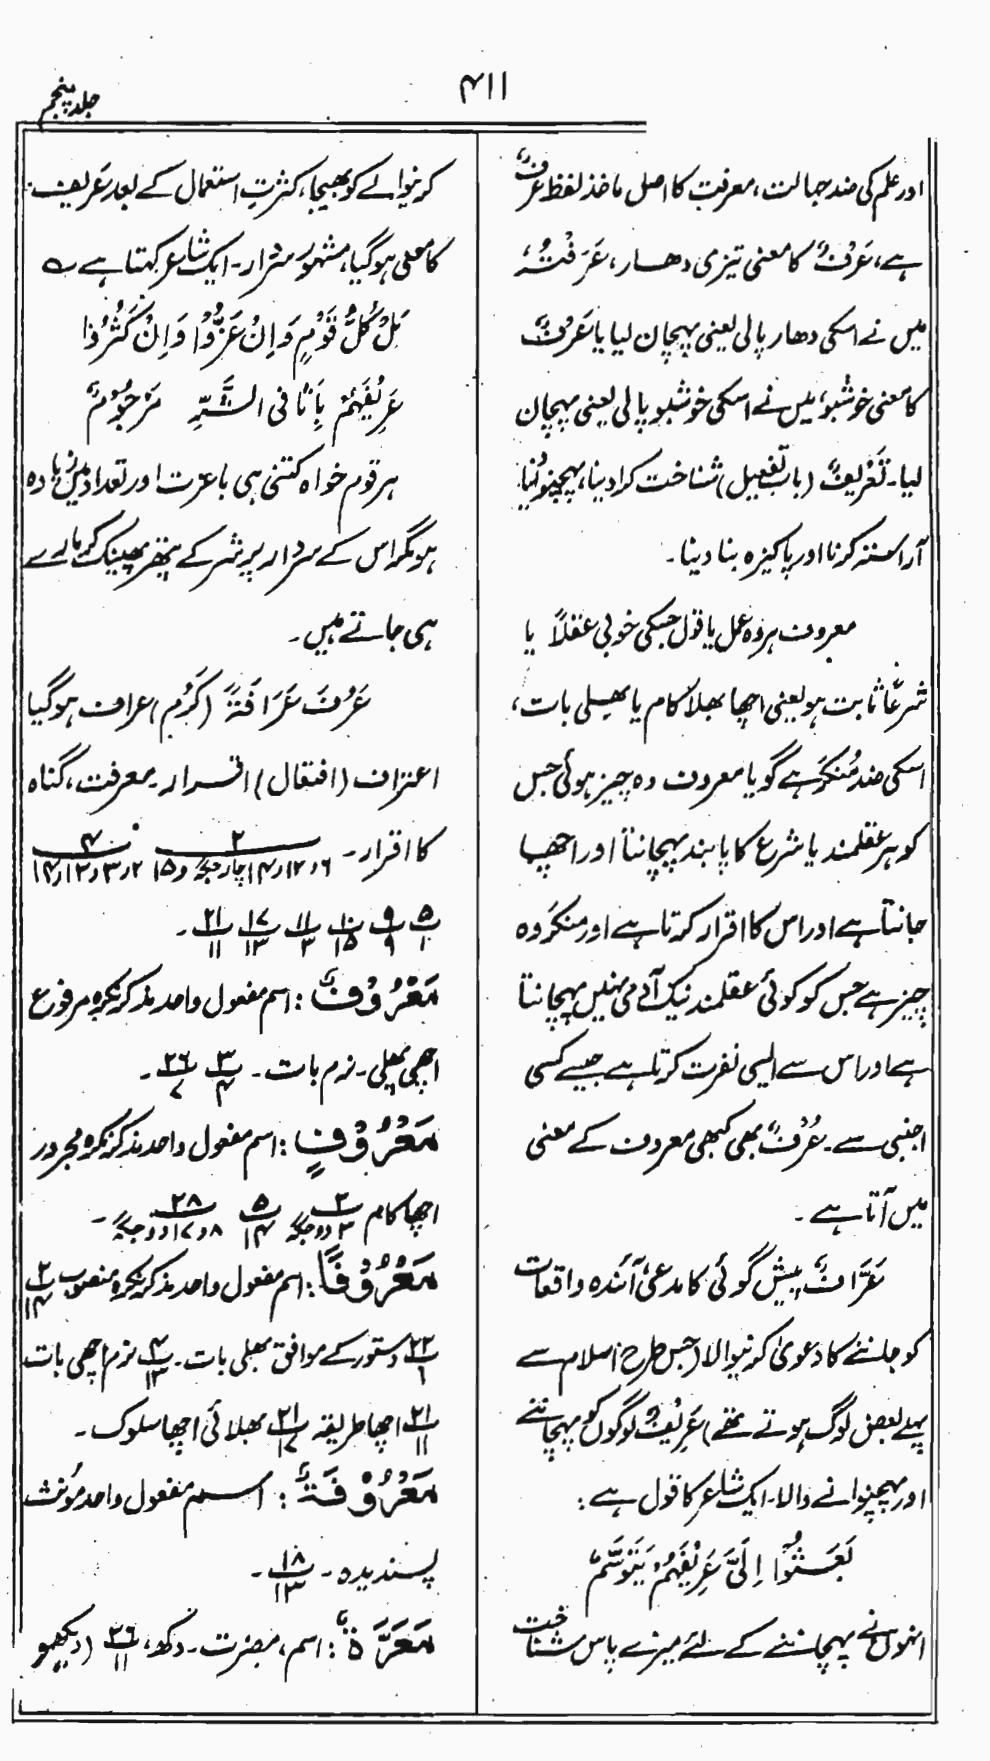 ۴۱۱
جلد پنجم
اور علم کی ضد جہالت، معرفت کا اصل ماخذ لفظ عرفٌ
ہے، عَرْفٌ کا معنی تیزی دھار، عَرَفْتُہٗ،
میں نے اسکی دھار پالی یعنی پہچان لیا یا عَرْفٌ
کا معنی خوشبو، میں نے اسکی خوشبو پالی یعنی پہچان
لیا۔ تَعْرِیْفٌ (باب تفعیل) شناخت کرا دینا، پہچنوانا،
آراستہ کرنا اور پاکیزہ بنا دینا۔
معروف ہر وہ عمل یا قول جسکی خوبی عقلاً یا
شرعًا ثابت ہو یعنی اچھا بھلا کام یا بھلی بات،
اسکی ضد مُنکَر ہے گویا معروف وہ چیز ہوئی جس
کو ہر عقلمند یا شرع کا پابند پہچانتا اور اچھا
جانتا ہے اور اس کا اقرار کرتا ہے اور منکر وہ
چیز ہے جس کو کوئی عقلمند نیک آدمی نہیں پہچانتا
ہے اور اس سے ایسی نفرت کرتا ہے جیسے کسی
اجنبی سے۔ عُرْفٌ بھی کبھی معروف کے معنی
میں آتا ہے۔
عَرَّافٌ پیش گوئی کا مدعی آئندہ واقعات
کو جاننے کا دعویٰ کرنیوالا (جس طرح اسلام سے
پہلے بعض لوگ ہوتے تھے) عَرِیْفٌ لوگوں کو پہچاننے
اور پہچنوانے والا۔ ایک شاعر کا قول ہے:
بَعَثُوْا اِلَیَّ عَرِیْفَہُمْ یَتَوَسَّمُ
انہوں نے پہچاننے کے لئے میرے پاس شناخت
کرنیوالے کو بھیجا، کثرتِ استعمال کے بعد عَریف
کا معنی ہو گیا، مشہور سردار۔ ایک شاعر کہتا ہے ؎
بَلْ کُلُّ قَوْمٍ وَاِنْ عَزُّوْا وَاِنْ کَثُرُوْا
عَرِیْفُہُمْ بِاَثَافِی الشَّرِّ مَرْجُوْمٌ
ہر قوم خواہ کتنی ہی با عزت اور تعداد میں زیادہ
ہو مگر اس کے سردار پر شر کے پتھر پھینک کر مارے
ہی جاتے ہیں۔
عَرُفَ عَرَافَۃً (کَرُم) عراف ہو گیا
اعتراف (افتعال) اقرار۔ معرفت، گناہ
کا اقرار۔ ۲ ۶ و ۱۲ و ۱۴ چار جگہ و ۱۵ ۴ ۲ و ۳ و ۱۲ و ۱۴
۵/۱ ۹/۹ ۱۰/۱۵ ۱۱/۳ ۱۷/۱۳ ۲۱/۱۱۔
مَعْرُوْفٌ: اسم مفعول واحد مذکر نکرہ مرفوع
اچھی بھلی۔ نرم بات۔ ۳/۴ ۲۶/۷۔
مَعْرُوْفٍ: اسم مفعول واحد مذکر نکرہ مجرور
اچھا کام ۲/۳ دو جگہ ۵/۱۴ ۲۸ ۸ و ۱۷ دو جگہ۔
مَعْرُوْفًا: اسم مفعول واحد مذکر نکرہ منصوب ۲/۱۴
۲۲/۶ دستور کے موافق بھلی بات۔ ۴/۱۲ نرم اچھی بات
۲۱/۱۱ اچھا طریقہ ۲۱/۱۷ بھلائی اچھا سلوک۔
مَعْرُوْفَۃٌ: اسم مفعول واحد مؤنث
پسندیدہ۔ ۱۸/۱۳۔
مَعَرَّۃٌ: اسم، مضرت۔ دکھ، ۲۶/۱۱ (دیکھو